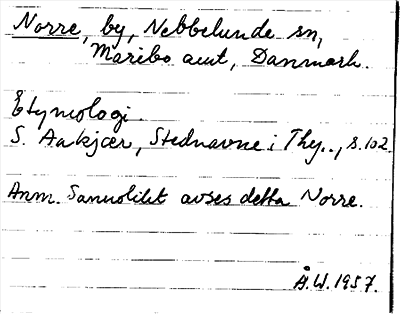 Norre, by, Nebbelunde sn,
Maribo amt, Danmark.
Etymologi.
S. Aakjær, Stednavne i Thy.., s. 102.
Anm. Sannolikt avses detta Norre.
Å.W. 1957.